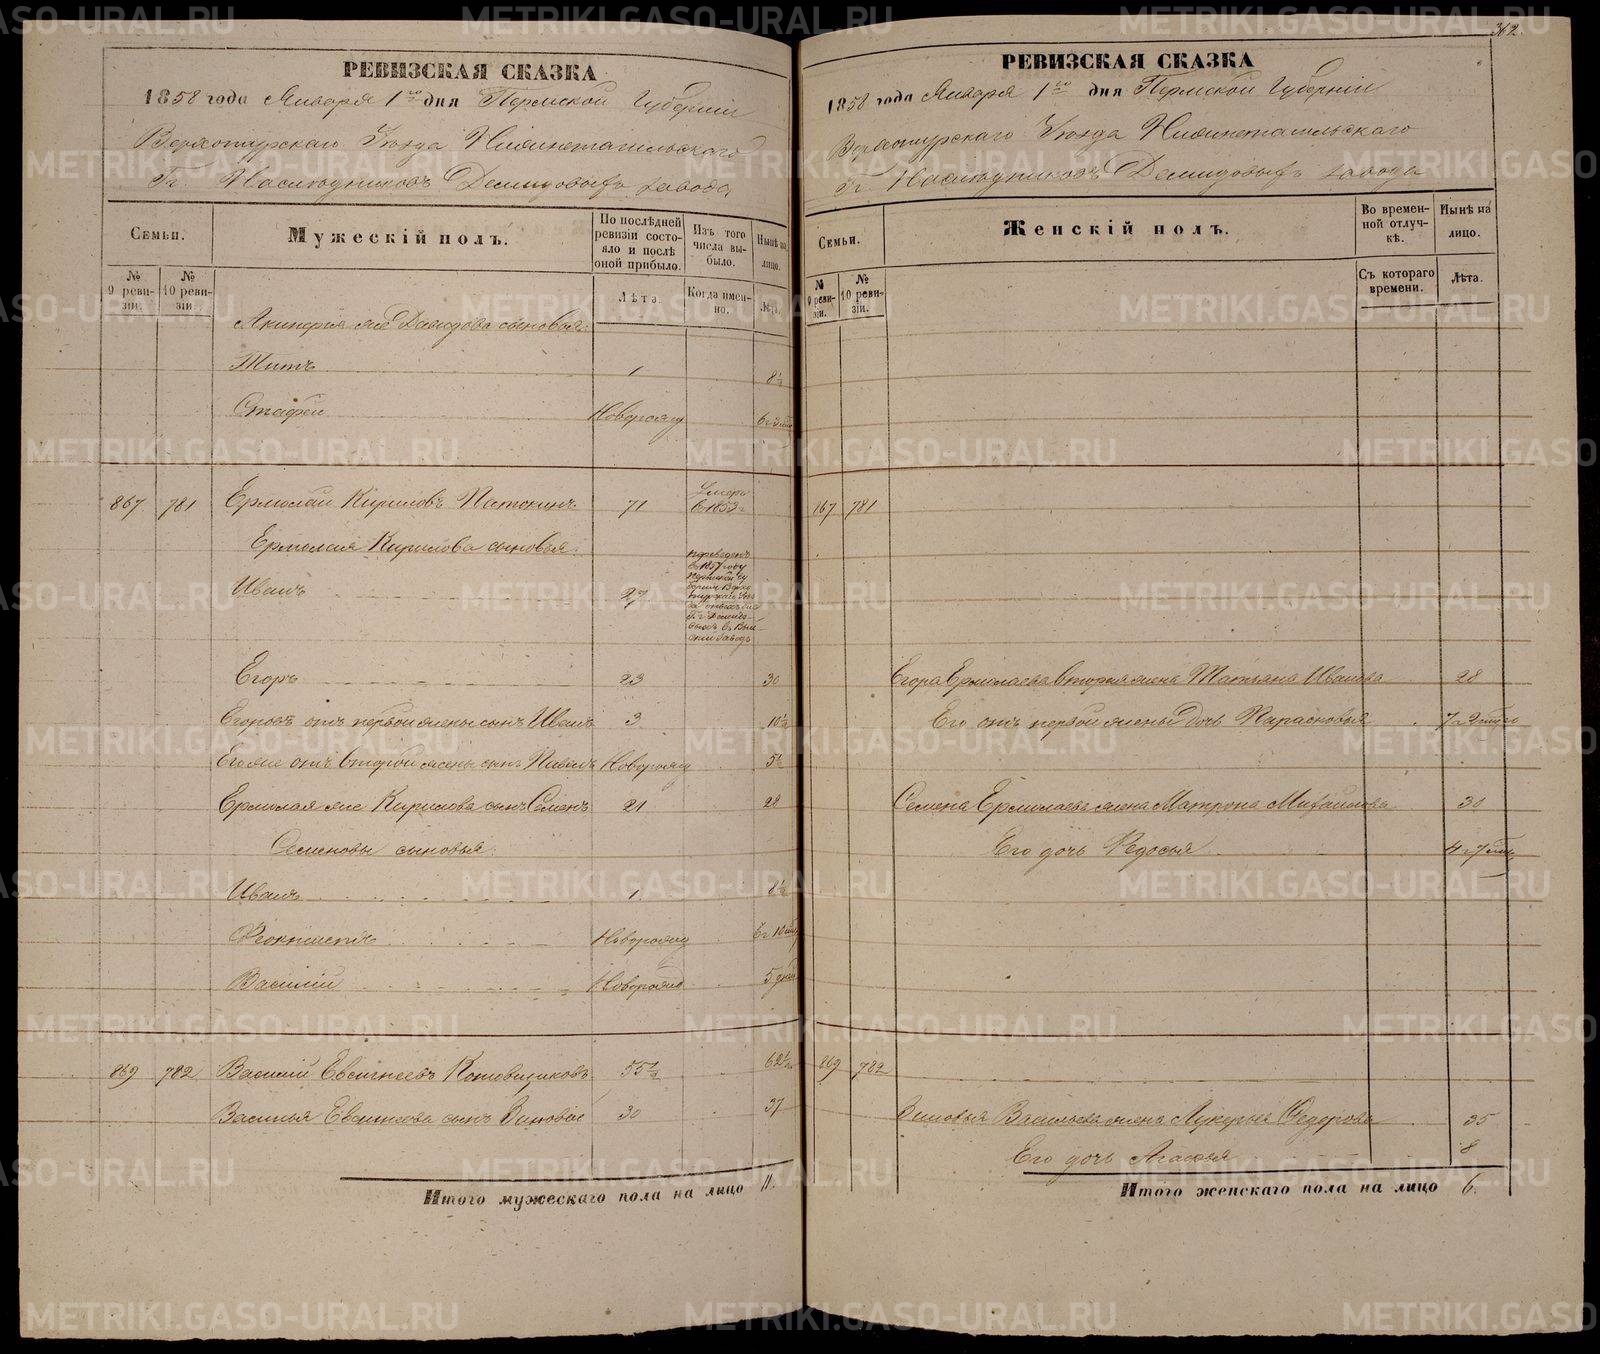 362.
РЕВИЗСКАЯ СКАЗКА
1858 года Января 1го дня Пермской Губерніи
Верхотурскаго Уѣзда Нижнетагильскаго
Гг. Наслѣдниковъ Демидовыхъ завода
Семьи.
Мужескій полъ.
По послѣдней ревизіи состояло и послѣ оной прибыло.
Изъ того числа выбыло.
Нынѣ на лицо.
№ 9 ревизіи.
№ 10 ревизіи.
Лѣта.
Когда именно.
Лѣта.
Акинфія же Давидова сыновья:
Титъ 1 8½
Стафей Новорожд
867 781 Ермолай Кириловъ Патокинъ 71 Умеръ в 1853 г
Ермолая Кирилова сыновья:
Иванъ 27 переведенъ в 1857 году Пермской Гу
Егоръ 23 30
Егоровъ отъ первой жены сынъ Иванъ 3 10½
Его же отъ второй жены сынъ Павелъ Новорожд 5½
Ермолая же Кирилова сынъ Семенъ 21 28
Семеновы сыновья:
Иванъ 1 8½
Феоктистъ Новорожд
Василій Новорожд 5 дней
869 782 Василій Евсигнеевъ Котовщиковъ 55½ 62½
Василья Евсигнеева сынъ Зиновій 30 37
Итого мужескаго пола на лицо 11.
РЕВИЗСКАЯ СКАЗКА
1858 года Января 1го дня Пермской Губерніи
Верхотурскаго Уѣзда Нижнетагильскаго
Гг. Наслѣдниковъ Демидовыхъ завода
Семьи.
Женскій полъ.
Во временной отлучкѣ.
Нынѣ на лицо.
№ 9 ревизіи.
№ 10 ревизіи.
Съ котораго времени.
Лѣта.
867 781
Егора Ермолаева вторая жена Татьяна Иванова 28
Его отъ первой жены дочь Парасковья
Семена Ермолаева жена Матрона Михайлова 30
Его дочь Федосья
869 782
Зиновья Васильева жена Лукерья Федорова 35
Его дочь Агафья 8
Итого женскаго пола на лицо 6.
METRIKI.GASO-URAL.RU